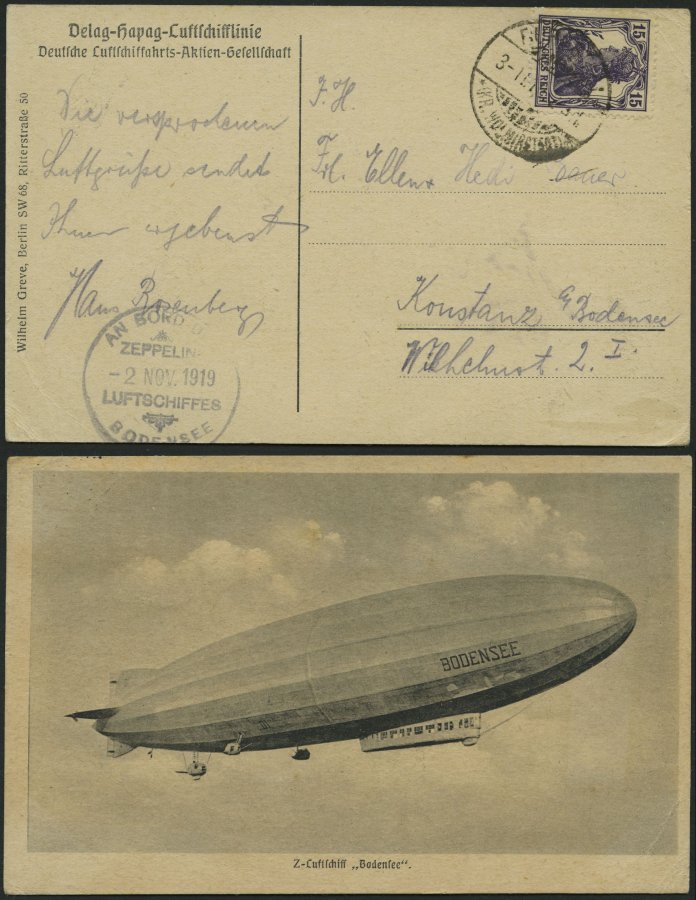 Delag-Hapag-Luftschifflinie
Deutsche Luftschiffahrts-Aktien-Gesellschaft
Wilhelm Greve, Berlin SW 68, Ritterstraße 50
Die versprochenen
Luftgrüße sendet
Ihnen ergebenst
Hans Rosenberg
AN BORD
ZEPPELIN-
-2 NOV. 1919
LUFTSCHIFFES
BODENSEE
15 15
DEUTSCHES REICH
3-11
F. H.
Frl. Ellen Hedi
Konstanz a/Bodensee
Wilhelmst. 2. I.
BODENSEE
Z-Luftschiff „Bodensee".